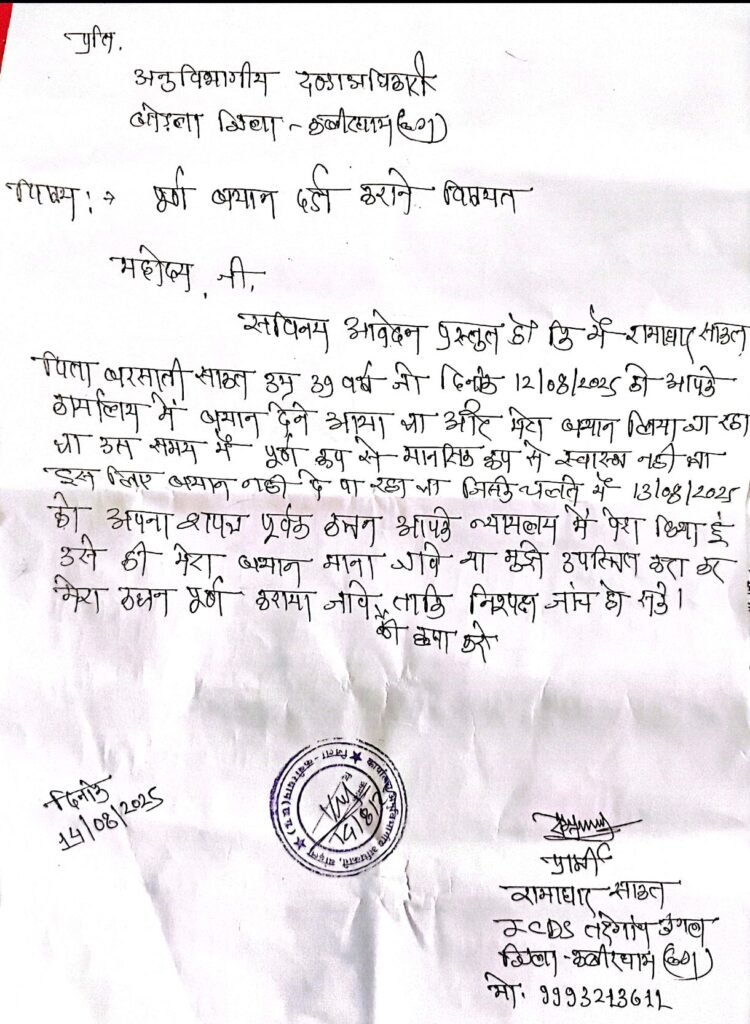 प्रति,
अनुविभागीय दण्डाधिकारी
बोड़ला जिला - कबीरधाम (छ.ग)
विषय :→ पूर्ण बयान दर्ज कराने विषयत
महोदय जी,
सविनय आवेदन प्रस्तुत है कि मैं रामाधार साकत
पिता बरसाती साकत उम्र 39 वर्ष जो दिनांक 12/08/2025 को आपके
कार्यालय में बयान देने आया था और मेरा बयान लिया जा रहा
था उस समय मैं पूर्ण रूप से मानसिक रूप से स्वास्थ नही था
इस लिए बयान नही दे पा रहा था जिसके चलते मैं 13/08/2025
को अपना शपथ पूर्वक कथन आपके न्यायालय में पेश किया हूं
उसे की मेरा बयान माना जावे या मुझे उपस्थित करा कर
मेरा कथन पूर्ण कराया जावे ताकि निश्पक्ष जांच हो सके।
की कृपा करे
दिनांक
14/08/2025
जिला - कबीरधाम (छ.ग.)
अनुविभागीय अधिकारी, बोड़ला
14/8/2
प्रार्थी
रामाधार साकत
ICDS जंगल
जिला - कबीरधाम (छ.ग)
मो. 9993213611